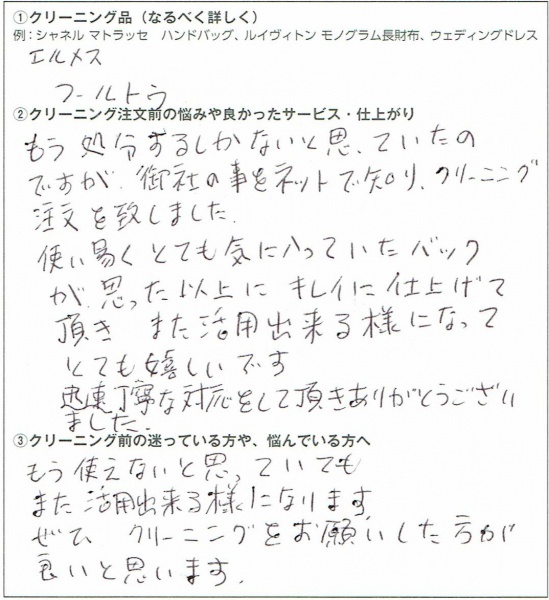 ①クリーニング品（なるべく詳しく）
例：シャネル マトラッセ　ハンドバッグ、ルイヴィトン モノグラム長財布、ウェディングドレス
エルメス
フールトゥ
②クリーニング注文前の悩みや良かったサービス・仕上がり
もう処分するしかないと思っていたの
ですが、御社の事をネットで知り、クリーニング
注文を致しました。
使い易くとても気に入っていたバック
が、思った以上にキレイに仕上げて
頂き　また活用出来る様になって
とても嬉しいです
迅速丁寧な対応をして頂きありがとうござい
ました。
③クリーニング前の迷っている方や、悩んでいる方へ
もう使えないと思っていても
また活用出来る様になります。
ぜひ　クリーニングをお願いした方が
良いと思います。